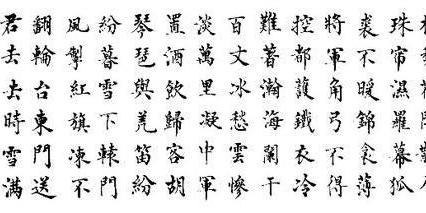 珠帘濕羅幕狐
裘不暖錦衾薄
將軍角弓不得
控都護鐵衣冷
難著瀚海闌干
百丈冰愁雲慘
淡萬里凝中軍
置酒飲歸客胡
琴琶與羌笛紛
紛暮雪下轅門
風掣紅旗凍不
翻輪台東門送
君去去時雪满